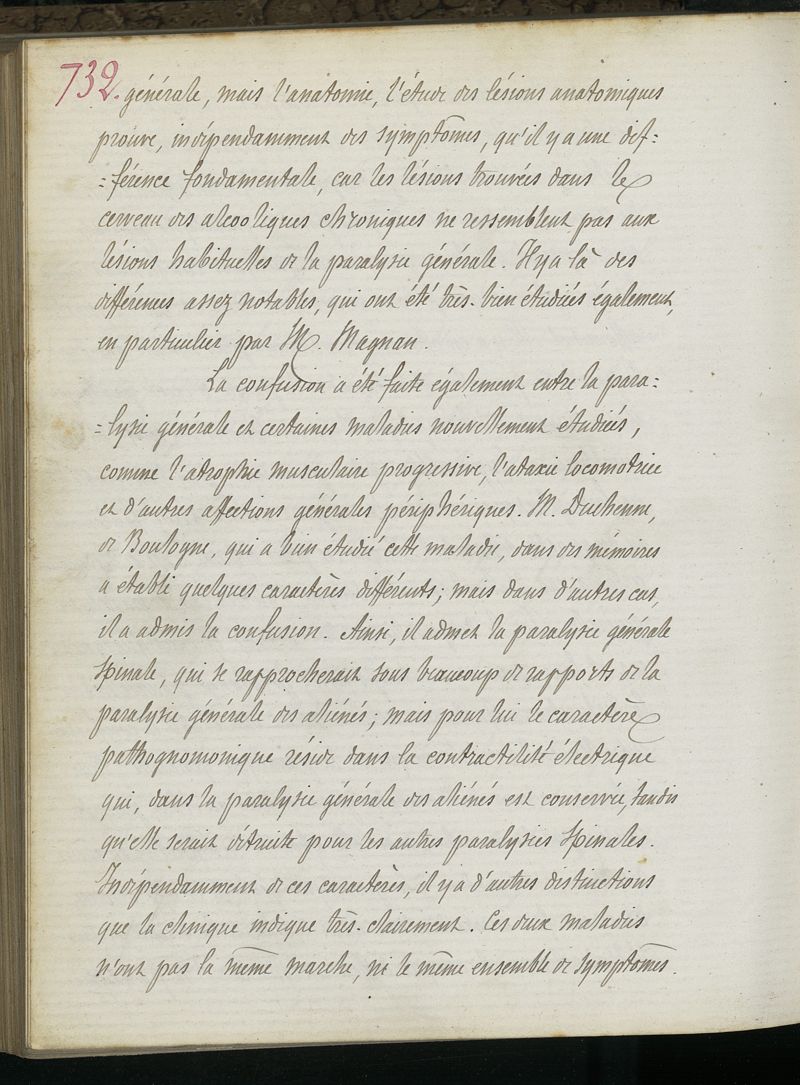 732. générale, mais l'anatomie, l'étude des lésions anatomiques
prouve, indépendamment des symptômes, qu'il y a une dif=
=férence fondamentale, car les lésions trouvées dans le
cerveau des alcooliques chroniques ne ressemblent pas aux
lésions habituelles de la paralysie générale. Il y a là des
différences assez notables, qui ont été très-bien étudiées également,
en particulier par M. Magnan.
La confusion a été faite également entre la para=
=lysie générale et certaines maladies nouvellement étudiées,
comme l'atrophie musculaire progressive, l'ataxie locomotrice
et d'autres affections générales périphériques. M. Duchenne,
de Boulogne, qui a bien étudié cette maladie, dans des mémoires
a établi quelques caractères différents; mais dans d'autres cas,
il a admis la confusion. Ainsi, il admet la paralysie générale
spinale, qui se rapprocherait sous beaucoup de rapports de la
paralysie générale des aliénés; mais pour lui le caractère
pathognomonique réside dans la contractilité électrique
qui, dans la paralysie générale des aliénés est conservée, tandis
qu'elle serait détruite pour les autres paralysies spinales.
Indépendamment de ces caractères, il y a d'autres distinctions
que la clinique indique très-clairement. Ces deux maladies
n'ont pas la même marche, ni le même ensemble de symptômes.